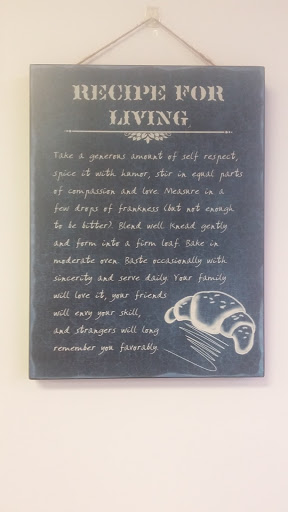 RECIPE FOR
LIVING
Take a generous amount of self respect,
spice it with humor, stir in equal parts
of compassion and love. Measure in a
few drops of frankness (but not enough
to be bitter). Blend well. Knead gently
and form into a firm loaf. Bake in
moderate oven. Baste occasionally with
sincerity and serve daily. Your family
will love it, your friends
will envy your skill,
and strangers will long
remember you favorably.